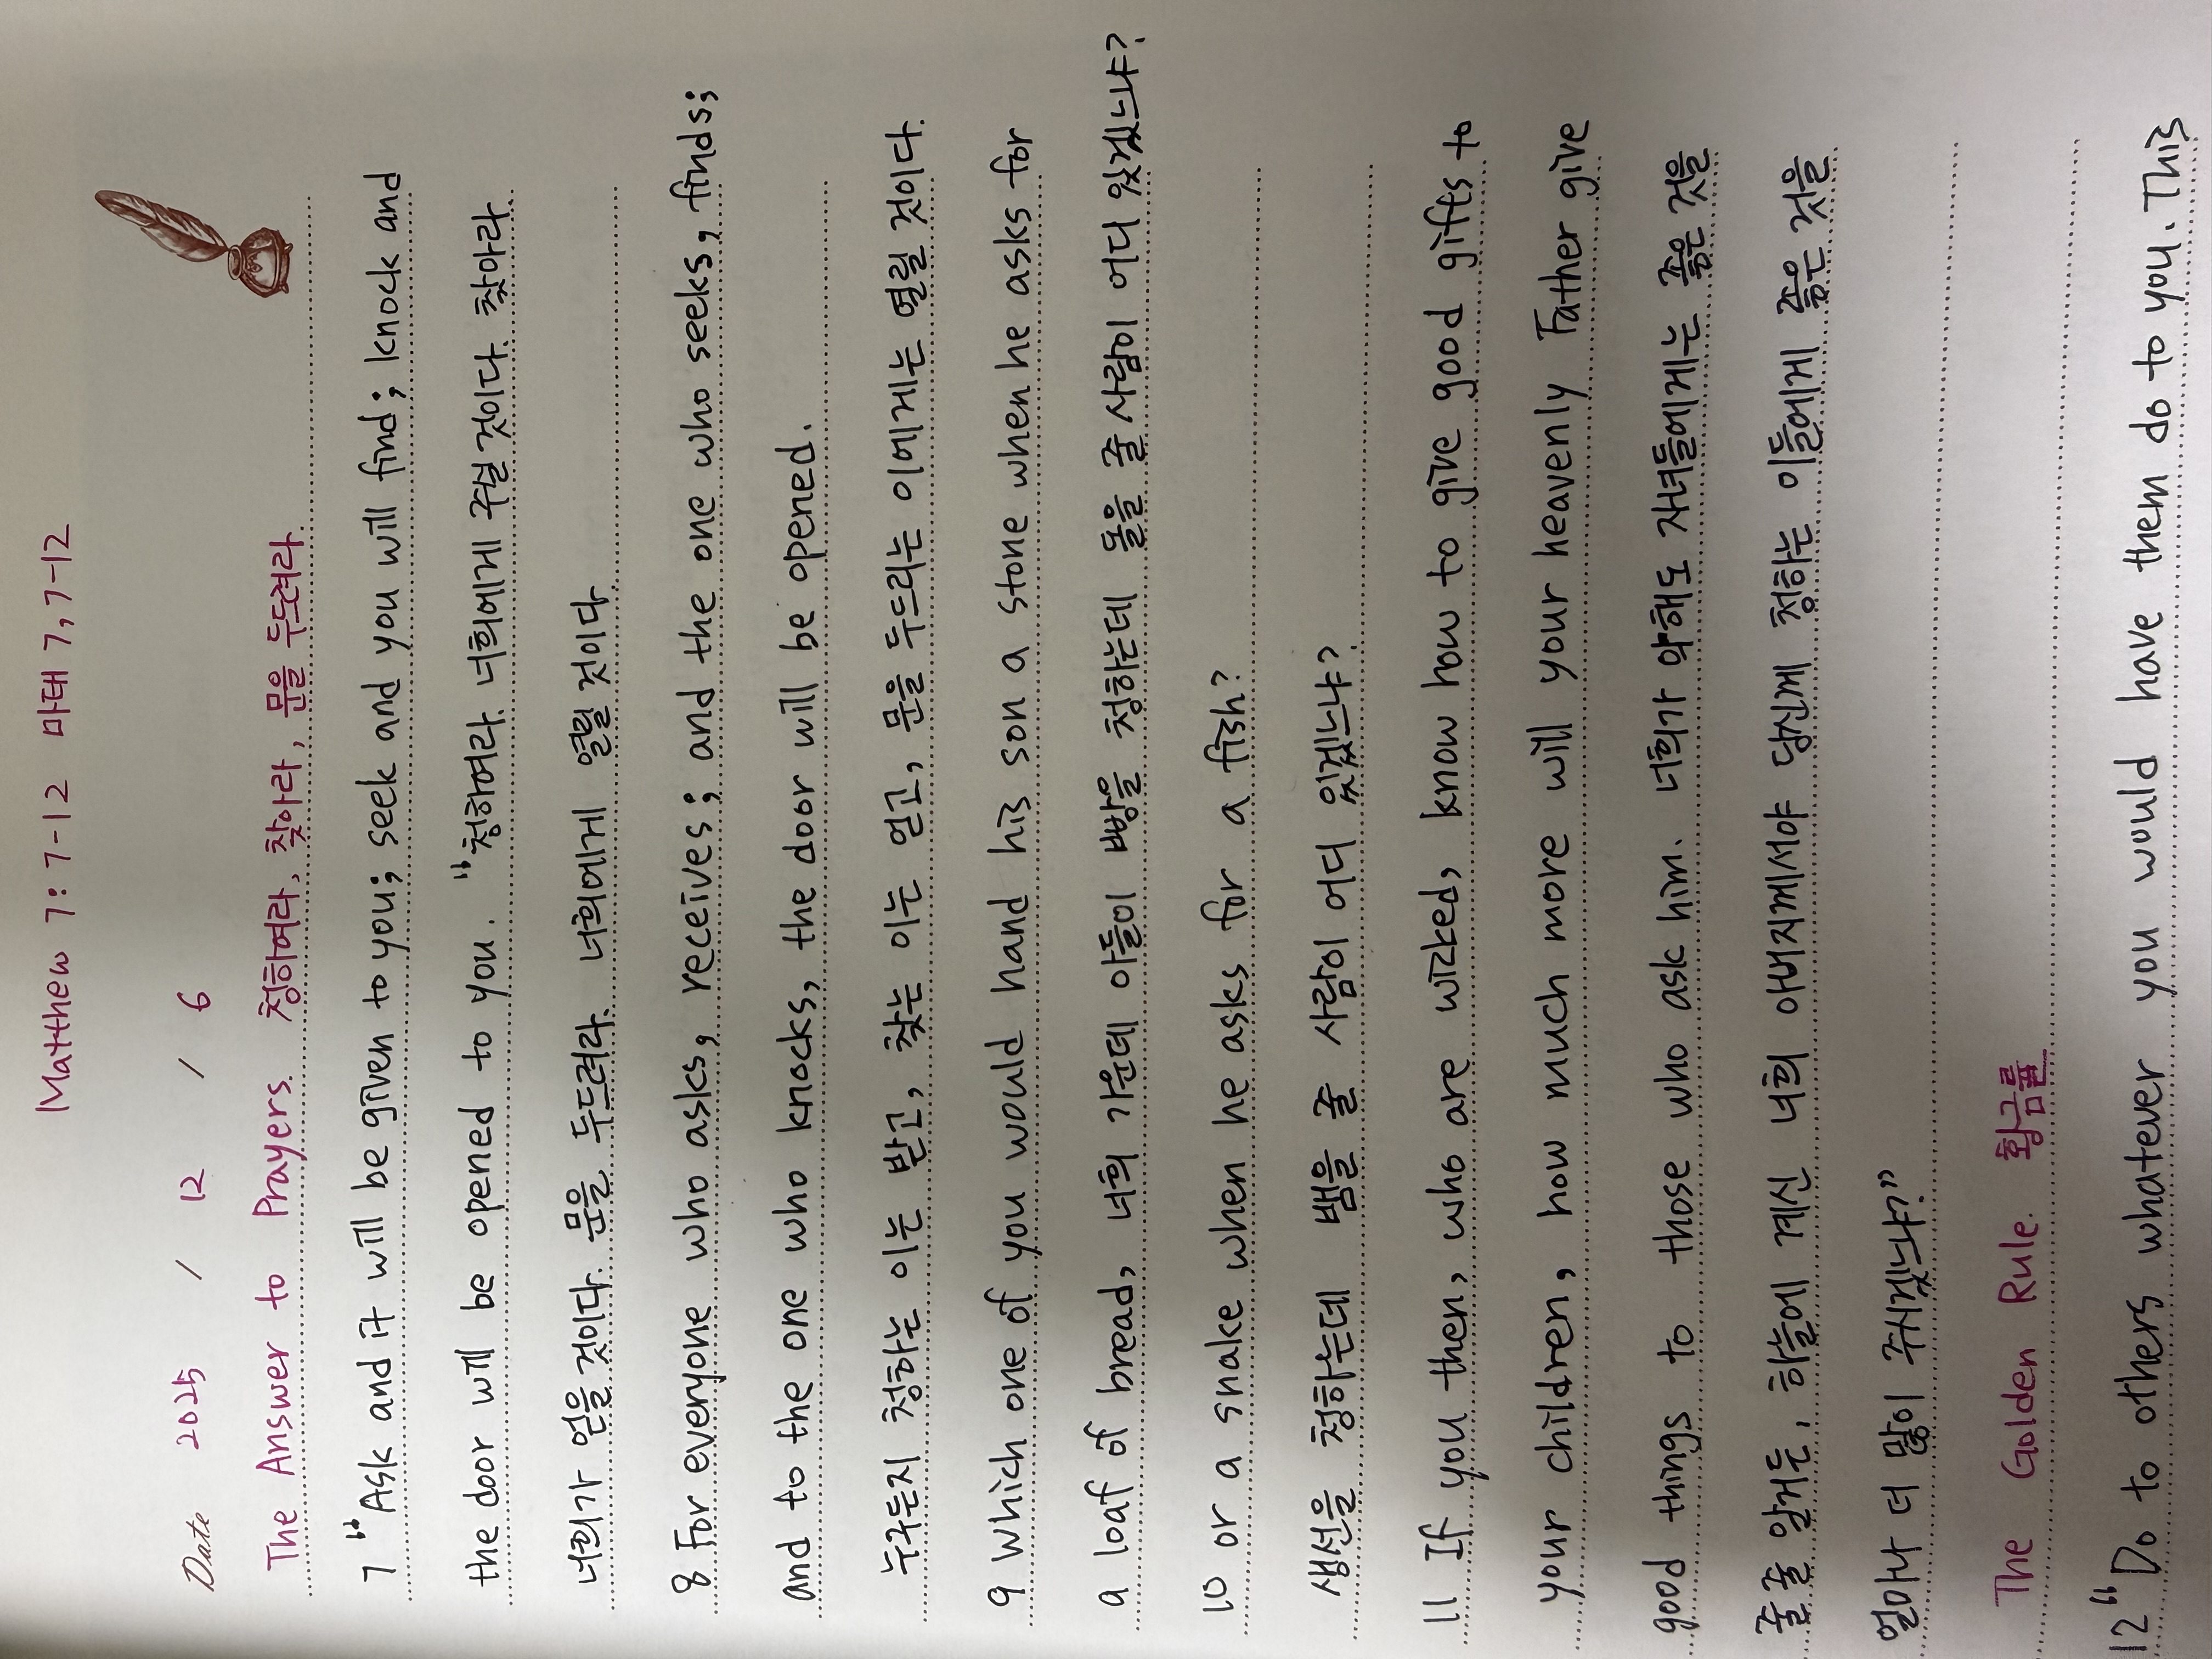 Matthew 7:7-12 마태 7,7-12
Date 2025 / 12 / 6
The Answer to Prayers. 청하여라, 찾아라, 문을 두드려라
7 "Ask and it will be given to you; seek and you will find; knock and
the door will be opened to you. "청하여라. 너희에게 주실 것이다. 찾아라.
너희가 얻을 것이다. 문을 두드려라. 너희에게 열릴 것이다.
8 For everyone who asks, receives; and the one who seeks, finds;
and to the one who knocks, the door will be opened.
누구든지 청하는 이는 받고, 찾는 이는 얻고, 문을 두드리는 이에게는 열릴 것이다.
9 Which one of you would hand his son a stone when he asks for
a loaf of bread, 너희 가운데 아들이 빵을 청하는데 돌을 줄 사람이 어디 있겠느냐?
10 or a snake when he asks for a fish?
생선을 청하는데 뱀을 줄 사람이 어디 있겠느냐?
11 If you then, who are wicked, know how to give good gifts to
your children, how much more will your heavenly Father give
good things to those who ask him. 너희가 악해도 자녀들에게는 좋은 것을
줄 줄 알거든, 하늘에 계신 너희 아버지께서야 당신께 청하는 이들에게 좋은 것을
얼마나 더 많이 주시겠느냐?"
The Golden Rule. 황금률
12 "Do to others whatever you would have them do to you. This